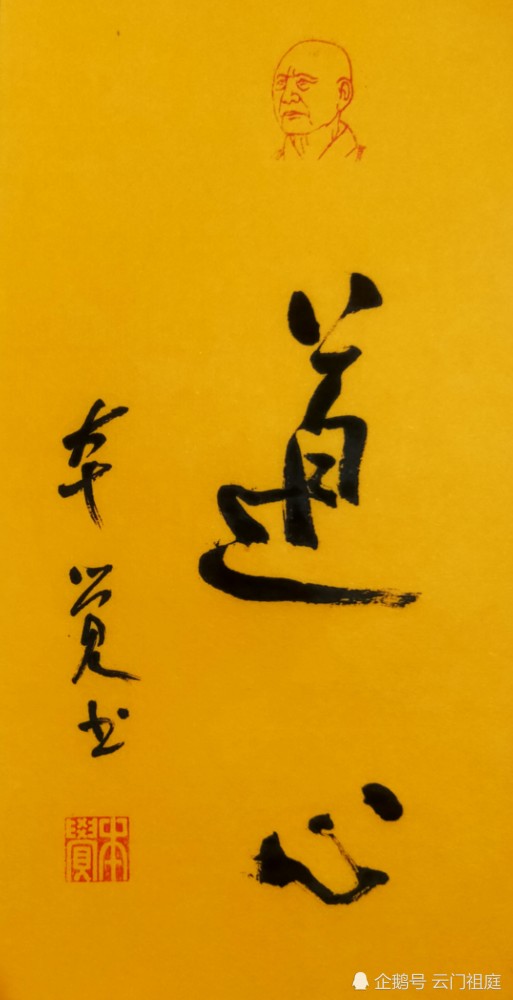 道心
本觉书
本覺
企鹅号 云门祖庭